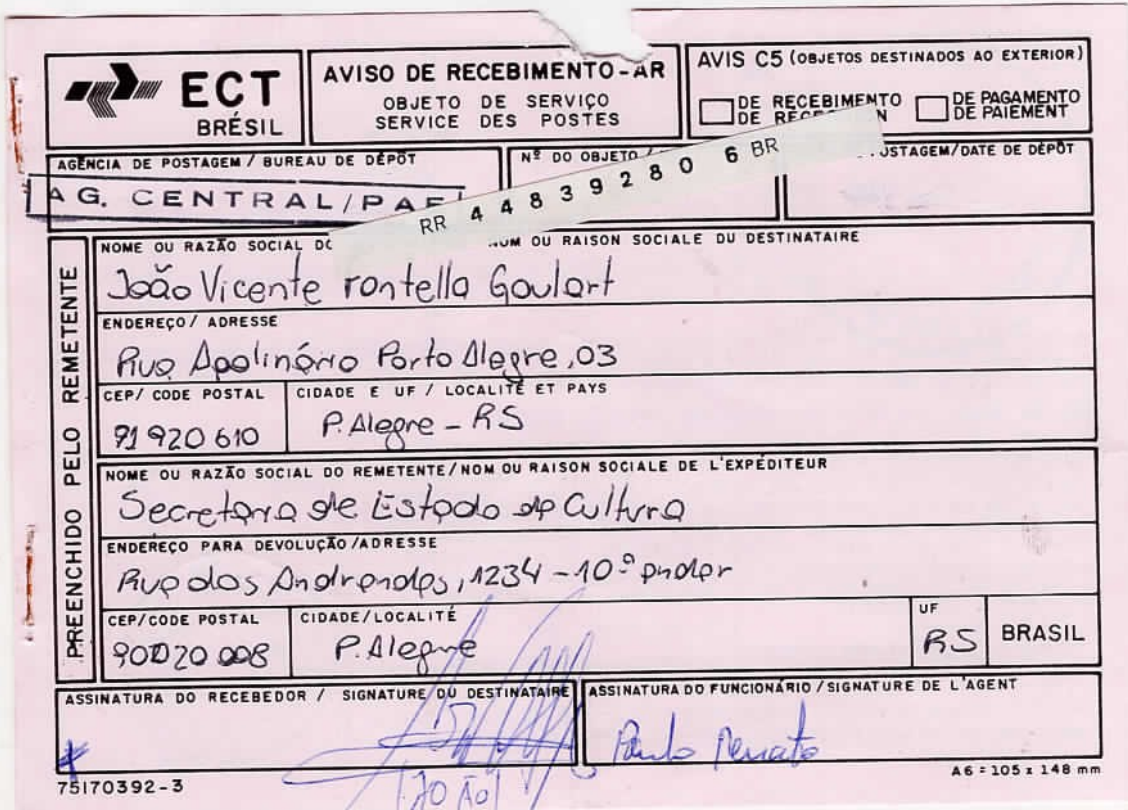 ECT
BRÉSIL
AVISO DE RECEBIMENTO-AR
OBJETO DE SERVIÇO
SERVICE DES POSTES
AVIS C5 (OBJETOS DESTINADOS AO EXTERIOR)
DE RECEBIMENTO
DE PAGAMENTO
DE PAIEMENT
AGÊNCIA DE POSTAGEM / BUREAU DE DÉPÔT
AG. CENTRAL/
Nº DO OBJETO /
/DATE DE DÉPÔT
RR 44839280 6 BR
PREENCHIDO PELO REMETENTE
NOME OU RAZÃO SOCIAL
OU RAISON SOCIALE DU DESTINATAIRE
João Vicente Fontella Goulart
ENDEREÇO/ ADRESSE
Rua Apolinário Porto Alegre, 03
CEP/ CODE POSTAL
CIDADE E UF / LOCALITÉ ET PAYS
91920610
P. Alegre - RS
NOME OU RAZÃO SOCIAL DO REMETENTE/NOM OU RAISON SOCIALE DE L'EXPÉDITEUR
Secretaria de Estado da Cultura
ENDEREÇO PARA DEVOLUÇÃO/ADRESSE
Rua dos Andradas, 1234 - 10º andar
CEP/CODE POSTAL
CIDADE/LOCALITÉ
UF
BRASIL
90020 008
P. Alegre
RS
ASSINATURA DO RECEBEDOR / SIGNATURE DU DESTINATAIRE
ASSINATURA DO FUNCIONÁRIO / SIGNATURE DE L'AGENT
Paulo Renato
75170392-3
A6 = 105 x 148 mm